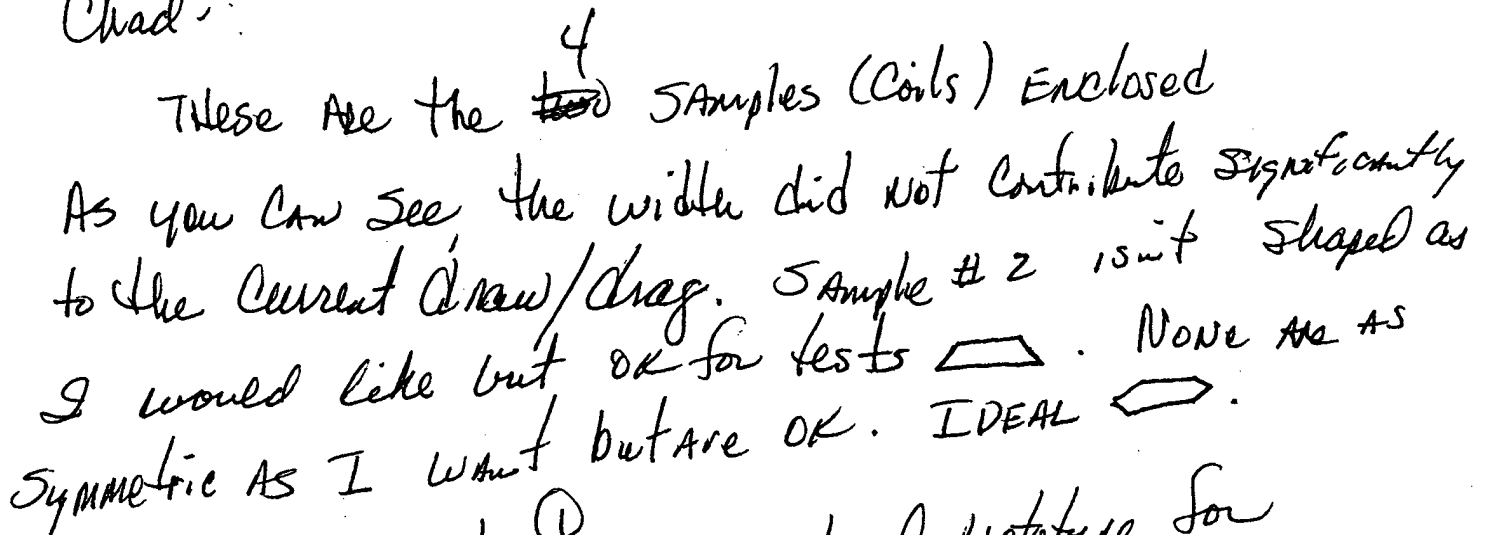 Chad:
4
These Are the two Samples (Coils) Enclosed
As you can see, the width did not contribute significantly
to the current draw/drag. Sample # 2 isn't shaped as
I would like but OK for tests. None are as
Symmetric As I want but Are OK. IDEAL.
for